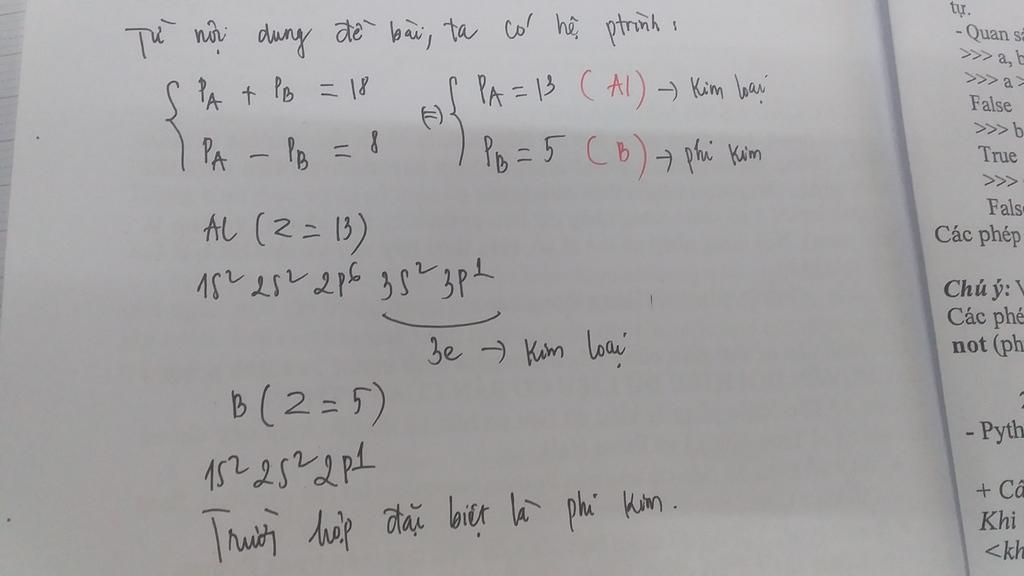 Từ nội dung đề bài, ta có hệ ptrình:
{ PA + PB = 18 (=) { PA = 13 (Al) → Kim loại
PA − PB = 8 PB = 5 (B) → phi kim
Al (Z = 13)
1s² 2s² 2p⁶ 3s² 3p¹
3e → Kim loại
B (Z = 5)
1s² 2s² 2p¹
Trường hợp đặc biệt là phi kim.
tự.
- Quan
>>> a,
>>> a >
False
>>> b
True
>>>
Các phép
Chú ý:
Các
not
+
Khi